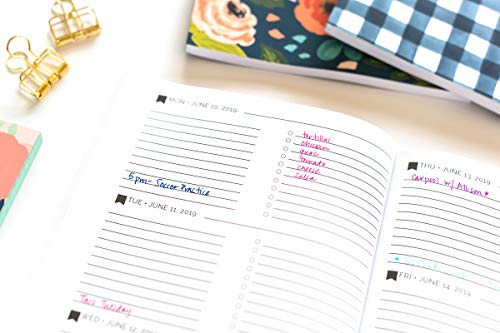 MON • JUNE 10, 2019
tortillas
chicken
guac
tomato
cheese
salsa
6 pm - Soccer Practice
TUE • JUNE 11, 2019
Taco Tuesday
WED • JUNE 12, 2019
THU • JUNE 13, 2019
carpool w/ Allison *
FRI • JUNE 14, 2019